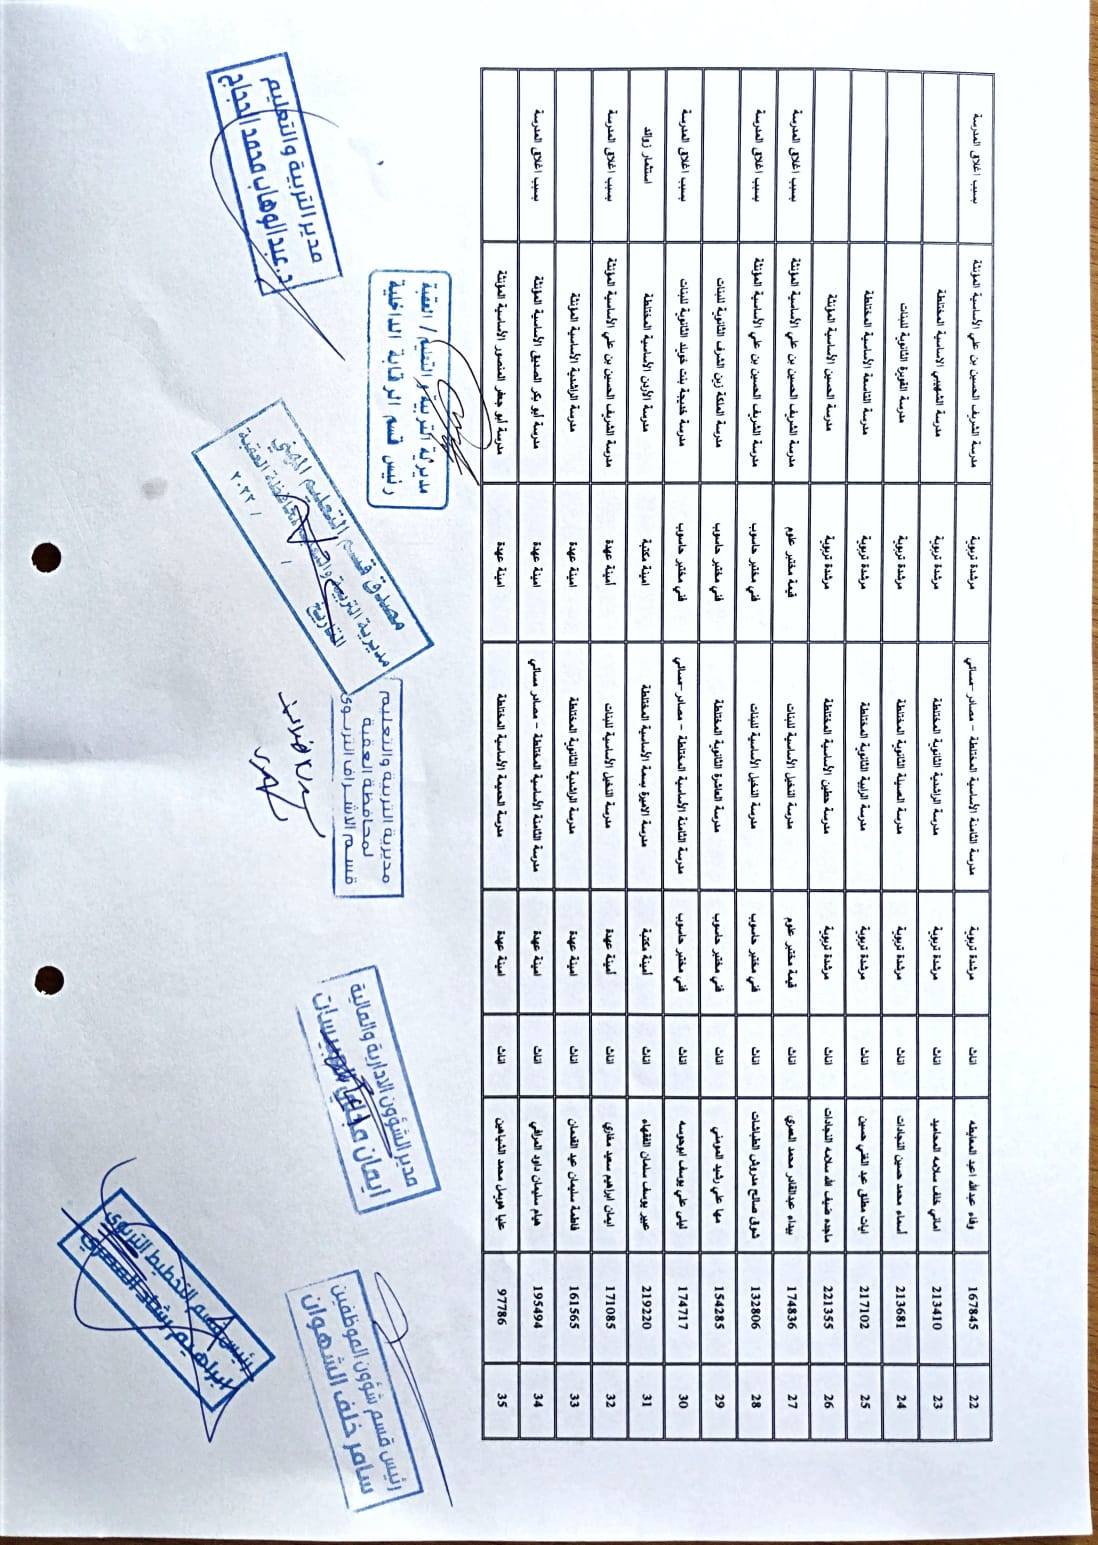 22 167845 وفاء عبدالله اعيد المعايطه اناث مرشدة تربوية مدرسة الثامنة الأساسية المختلطة - مصادر -مسائي مرشدة تربوية مدرسة الشريف الحسين بن علي الأساسية المؤنثة بسبب اغلاق المدرسة
23 213410 اماني خلف سلامه المحاميد اناث مرشدة تربوية مدرسة الراشدية الثانوية المختلطة مرشدة تربوية مدرسة الشهيبي الاساسية المختلطة
24 213681 أسماء محمد حسين النجادات اناث مرشدة تربوية مدرسة الثانوية المختلطة مرشدة تربوية مدرسة القويرة الثانوية للبنات
25 217102 ايات مطلق عبد الغني حسين اناث مرشدة تربوية مدرسة الرابية الثانوية المختلطة مرشدة تربوية مدرسة التاسعة الأساسية المختلطة
26 221355 ماجده ضيف الله سلامه النجادات اناث مرشدة تربوية مدرسة حطين الأساسية المختلطة مرشدة تربوية مدرسة الحسين الأساسية المؤنثة
27 174836 بيداء عبدالقادر محمد المصري اناث قيمة مختبر علوم مدرسة النخيل الأساسية للبنات قيمة مختبر علوم مدرسة الشريف الحسين بن علي الأساسية المؤنثة بسبب اغلاق المدرسة
28 132806 شوق صالح مدروش الطباشات اناث فني مختبر حاسوب مدرسة النخيل الأساسية للبنات فني مختبر حاسوب مدرسة الشريف الحسين بن علي الأساسية المؤنثة بسبب اغلاق المدرسة
29 154285 مها علي رشيد المومني اناث فني مختبر حاسوب مدرسة العاشرة الثانوية المختلطة فني مختبر حاسوب مدرسة الملكة زين الشرف الثانوية للبنات
30 174717 ليلى علي يوسف ابوحوسه اناث فني مختبر حاسوب مدرسة الثامنة الأساسية المختلطة - مصادر -مسائي فني مختبر حاسوب مدرسة خديجة بنت خويلد الثانوية للبنات بسبب اغلاق المدرسة
31 219220 عبير يوسف سلمان الفقهاء اناث أمينة مكتبة مدرسة الاميرة بسمة الأساسية المختلطة امينة مكتبة مدرسة الأرين الأساسية المختلطة استثمار زوائد
32 171085 ايمان ابراهيم سعيد مغازي اناث أمينة عهدة مدرسة النخيل الأساسية للبنات أمينة عهدة مدرسة الشريف الحسين بن علي الأساسية المؤنثة بسبب اغلاق المدرسة
33 161565 فاطمة سليمان عيد القدمان اناث امينة عهدة مدرسة الراشدية الثانوية المختلطة امينة عهدة مدرسة الراشدية الأساسية المؤنثة
34 195494 هيام سليمان داود المراقي اناث امينة عهدة مدرسة الثامنة الأساسية المختلطة - مصادر مسائي امينة عهدة مدرسة أبو بكر الصديق الأساسية المؤنثة بسبب اغلاق المدرسة
35 97786 عليا هويمل محمد الشباهين اناث امينة عهدة مدرسة الحميمة الأساسية المختلطة امينة عهدة مدرسة أبو جعفر المنصور الأساسية المؤنثة
رئيس قسم شؤون الموظفين
سامر خلف الشهوان
رئيس قسم التخطيط التربوي
ابراهيم رشاد المصري
مدير الشؤون الادارية والمالية
ايمان
مديرية التربية والتعليم
لمحافظة العقبة
قسم الاشراف التربوي
مصدق قسم التعليم المهني
مديرية التربية والتعليم لمحافظة العقبة
التاريخ / / ٢٠٢٢
مديرية التربية و التعليم / العقبة
رئيس قسم الرقابة الداخلية
مدير التربية والتعليم
د.عبدالوهاب محمد الحجاج